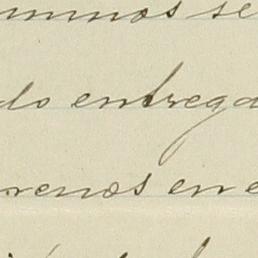 mnos se
do entrega
renos en e